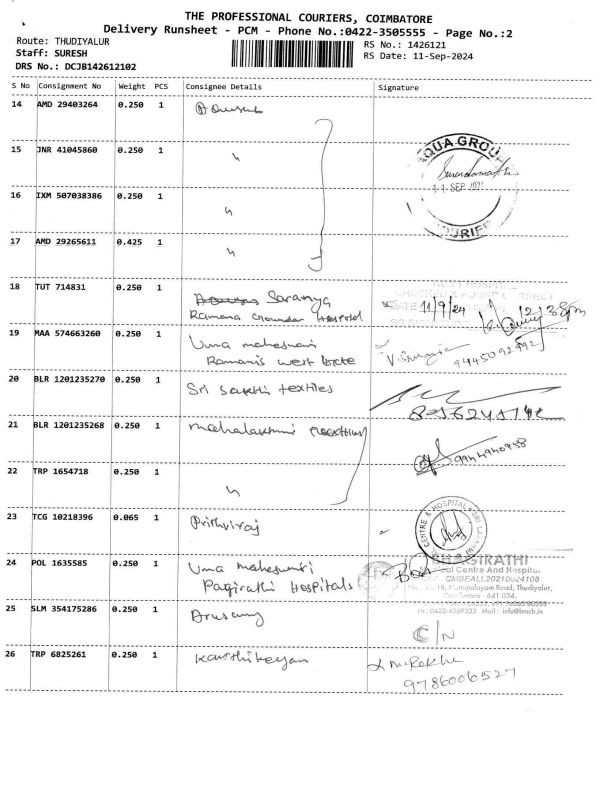 THE PROFESSIONAL COURIERS, COIMBATORE
Delivery Runsheet - PCM - Phone No.:0422-3505555 - Page No.:2
Route: THUDIYALUR
Staff: SURESH
DRS No.: DCJB142612102
RS No.: 1426121
RS Date: 11-Sep-2024
S No Consignment No Weight PCS Consignee Details Signature
14 AMD 29403264 0.250 1
15 JNR 41045860 0.250 1 "
AQUA GROU
11 SEP
16 IXM 507038386 0.250 1 "
17 AMD 29265611 0.425 1 "
18 TUT 714831 0.250 1 Saranya
Ramana Hospital
DATE 11/9/24
19 MAA 574663260 0.250 1 Uma maheswari
Ramanis west
9445092992
20 BLR 1201235270 0.250 1 Sri Sakthi textiles
21 BLR 1201235268 0.250 1 mahalakshmi
9944940958
22 TRP 1654718 0.250 1 "
23 TCG 10218396 0.065 1 Prithviraj
CENTRE & HOSPITAL
24 POL 1635585 0.250 1 Uma maheswari
Pagirathi Hospitals
BHAGIRATHI
Medical Centre And Hospital
Mettupalayam Road, Thudiyalur,
Coimbatore - 641 034.
0422-4349333 Mail : info@bmch.in
25 SLM 354175286 0.250 1 Arusamy
C/N
26 TRP 6825261 0.250 1 Karthikeyan
M. Rekha
9786006527